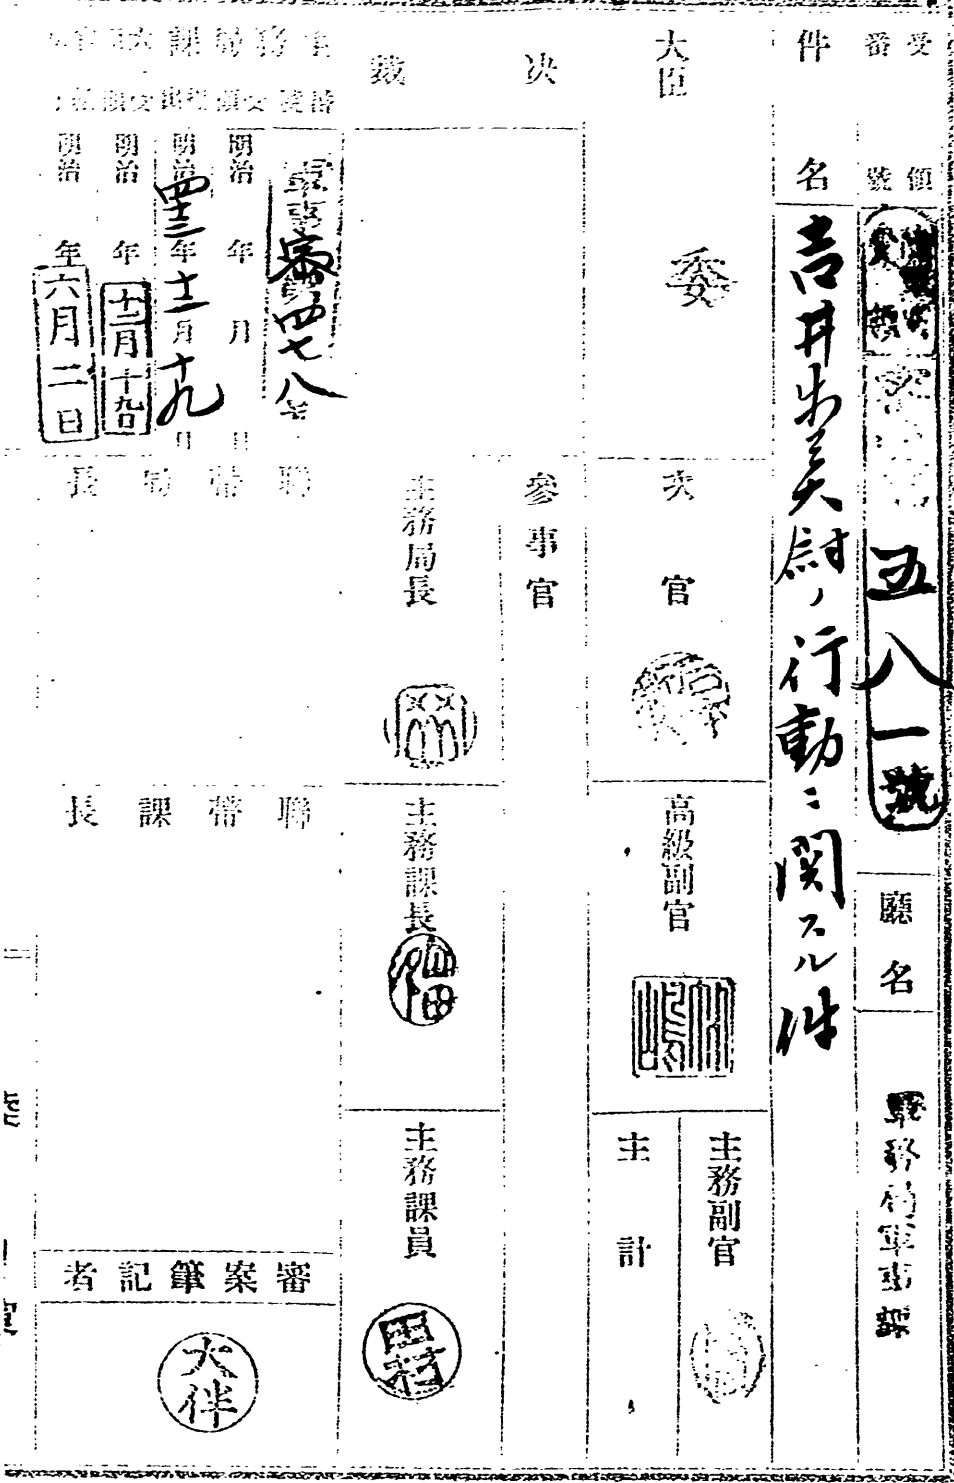 受領
番號
五八一號
廳名
軍務局軍事課
件名
吉井歩兵大尉ノ行動ニ関スル件
大臣
委
次官
高級副官
主務副官
主計
決
參事官
裁
主務局長
主務課長
福田
主務課員
田村
軍事
第四七八号
明治 年 月 日
明治四十三年十二月十九日
明治 年十二月十九日
明治 年六月二日
聯帶局長
聯帶課長
審案筆記者
大伴